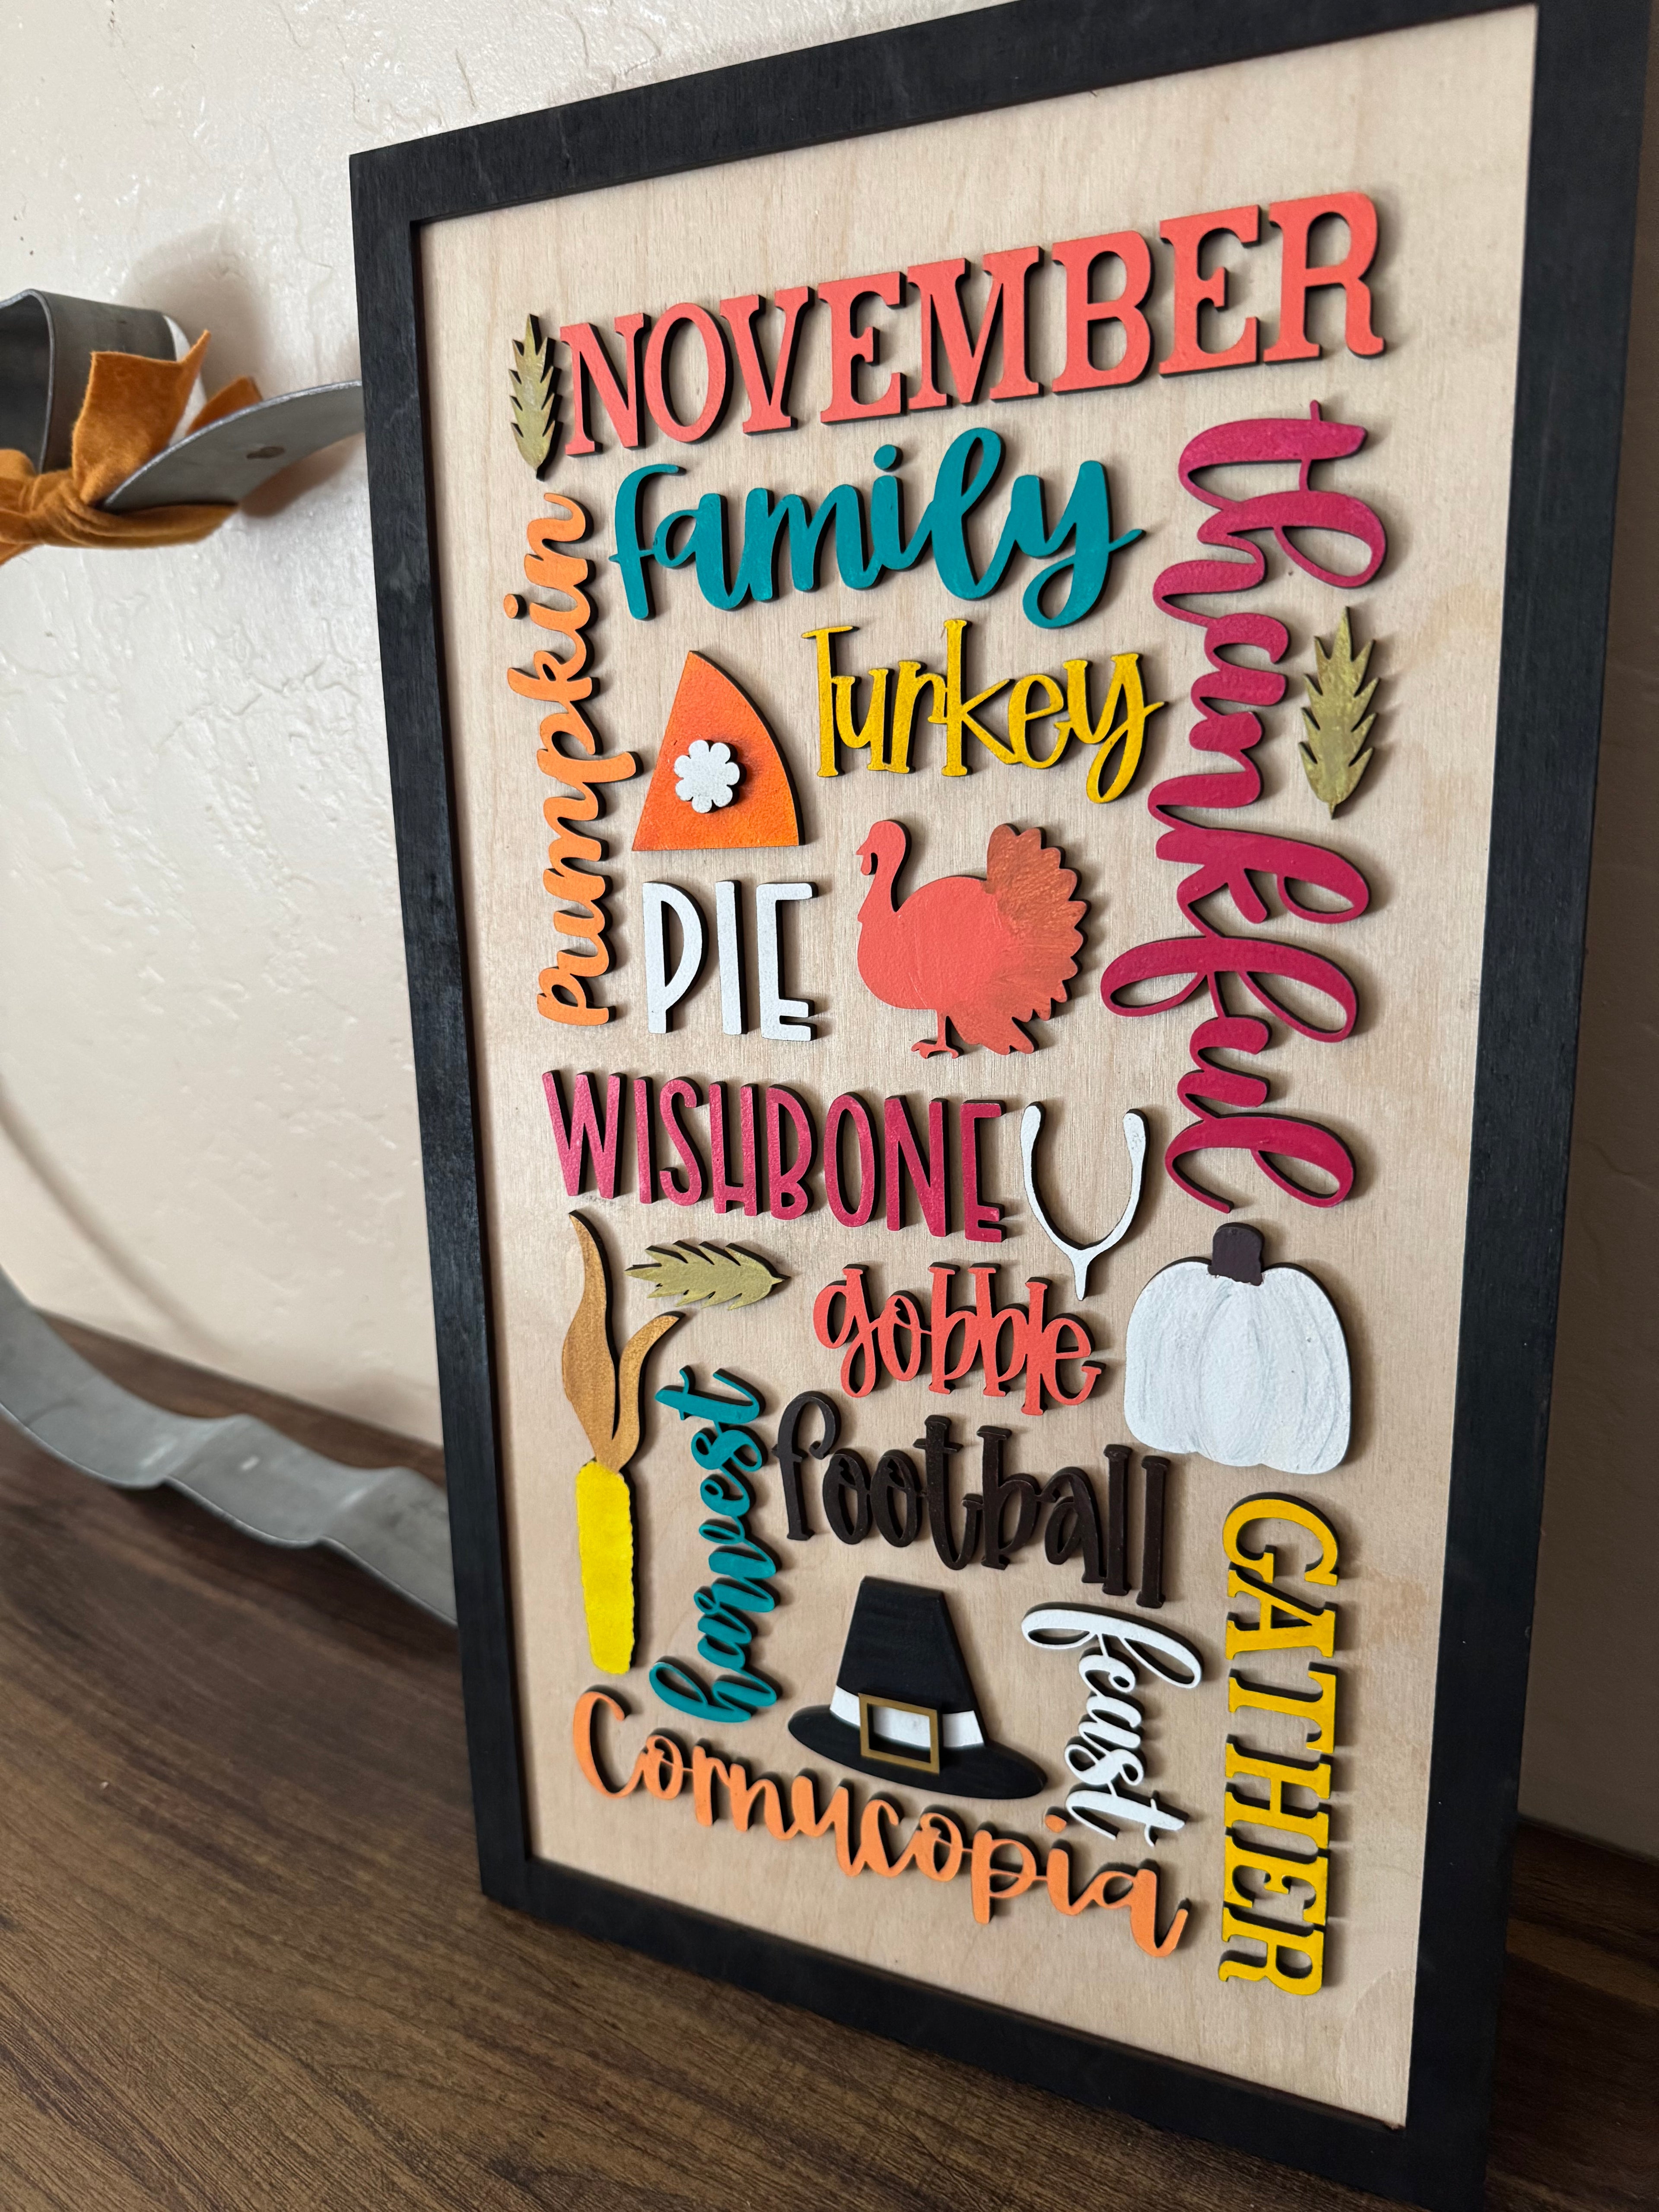 NOVEMBER
family
thankful
pumpkin
Turkey
PIE
WISHBONE
gobble
harvest
football
feast
GATHER
Cornucopia